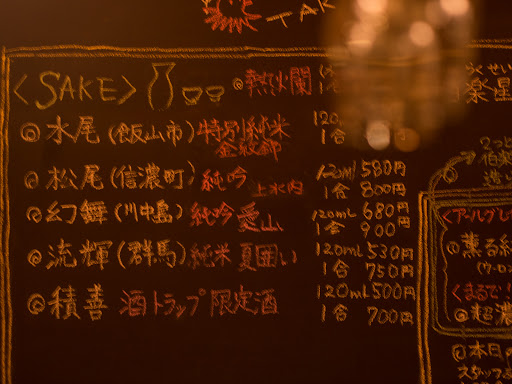 TAK
<SAKE> ◎熱火燗
◎水尾(飯山市)特別純米
金紋錦
1合
◎松尾(信濃町)純吟 120ml 580円
上水内 1合 800円
◎幻舞(川中島)純吟 愛山 120mL 680円
1合 900円
◎流輝(群馬)純米 夏囲い 120ml 530円
1合 750円
◎積善 酒トラップ限定酒 120ml 500円
1合 700円
2つと
<アールグレ
◎薫る紅
<まるで!
◎超濃
◎本日の
スタッフ